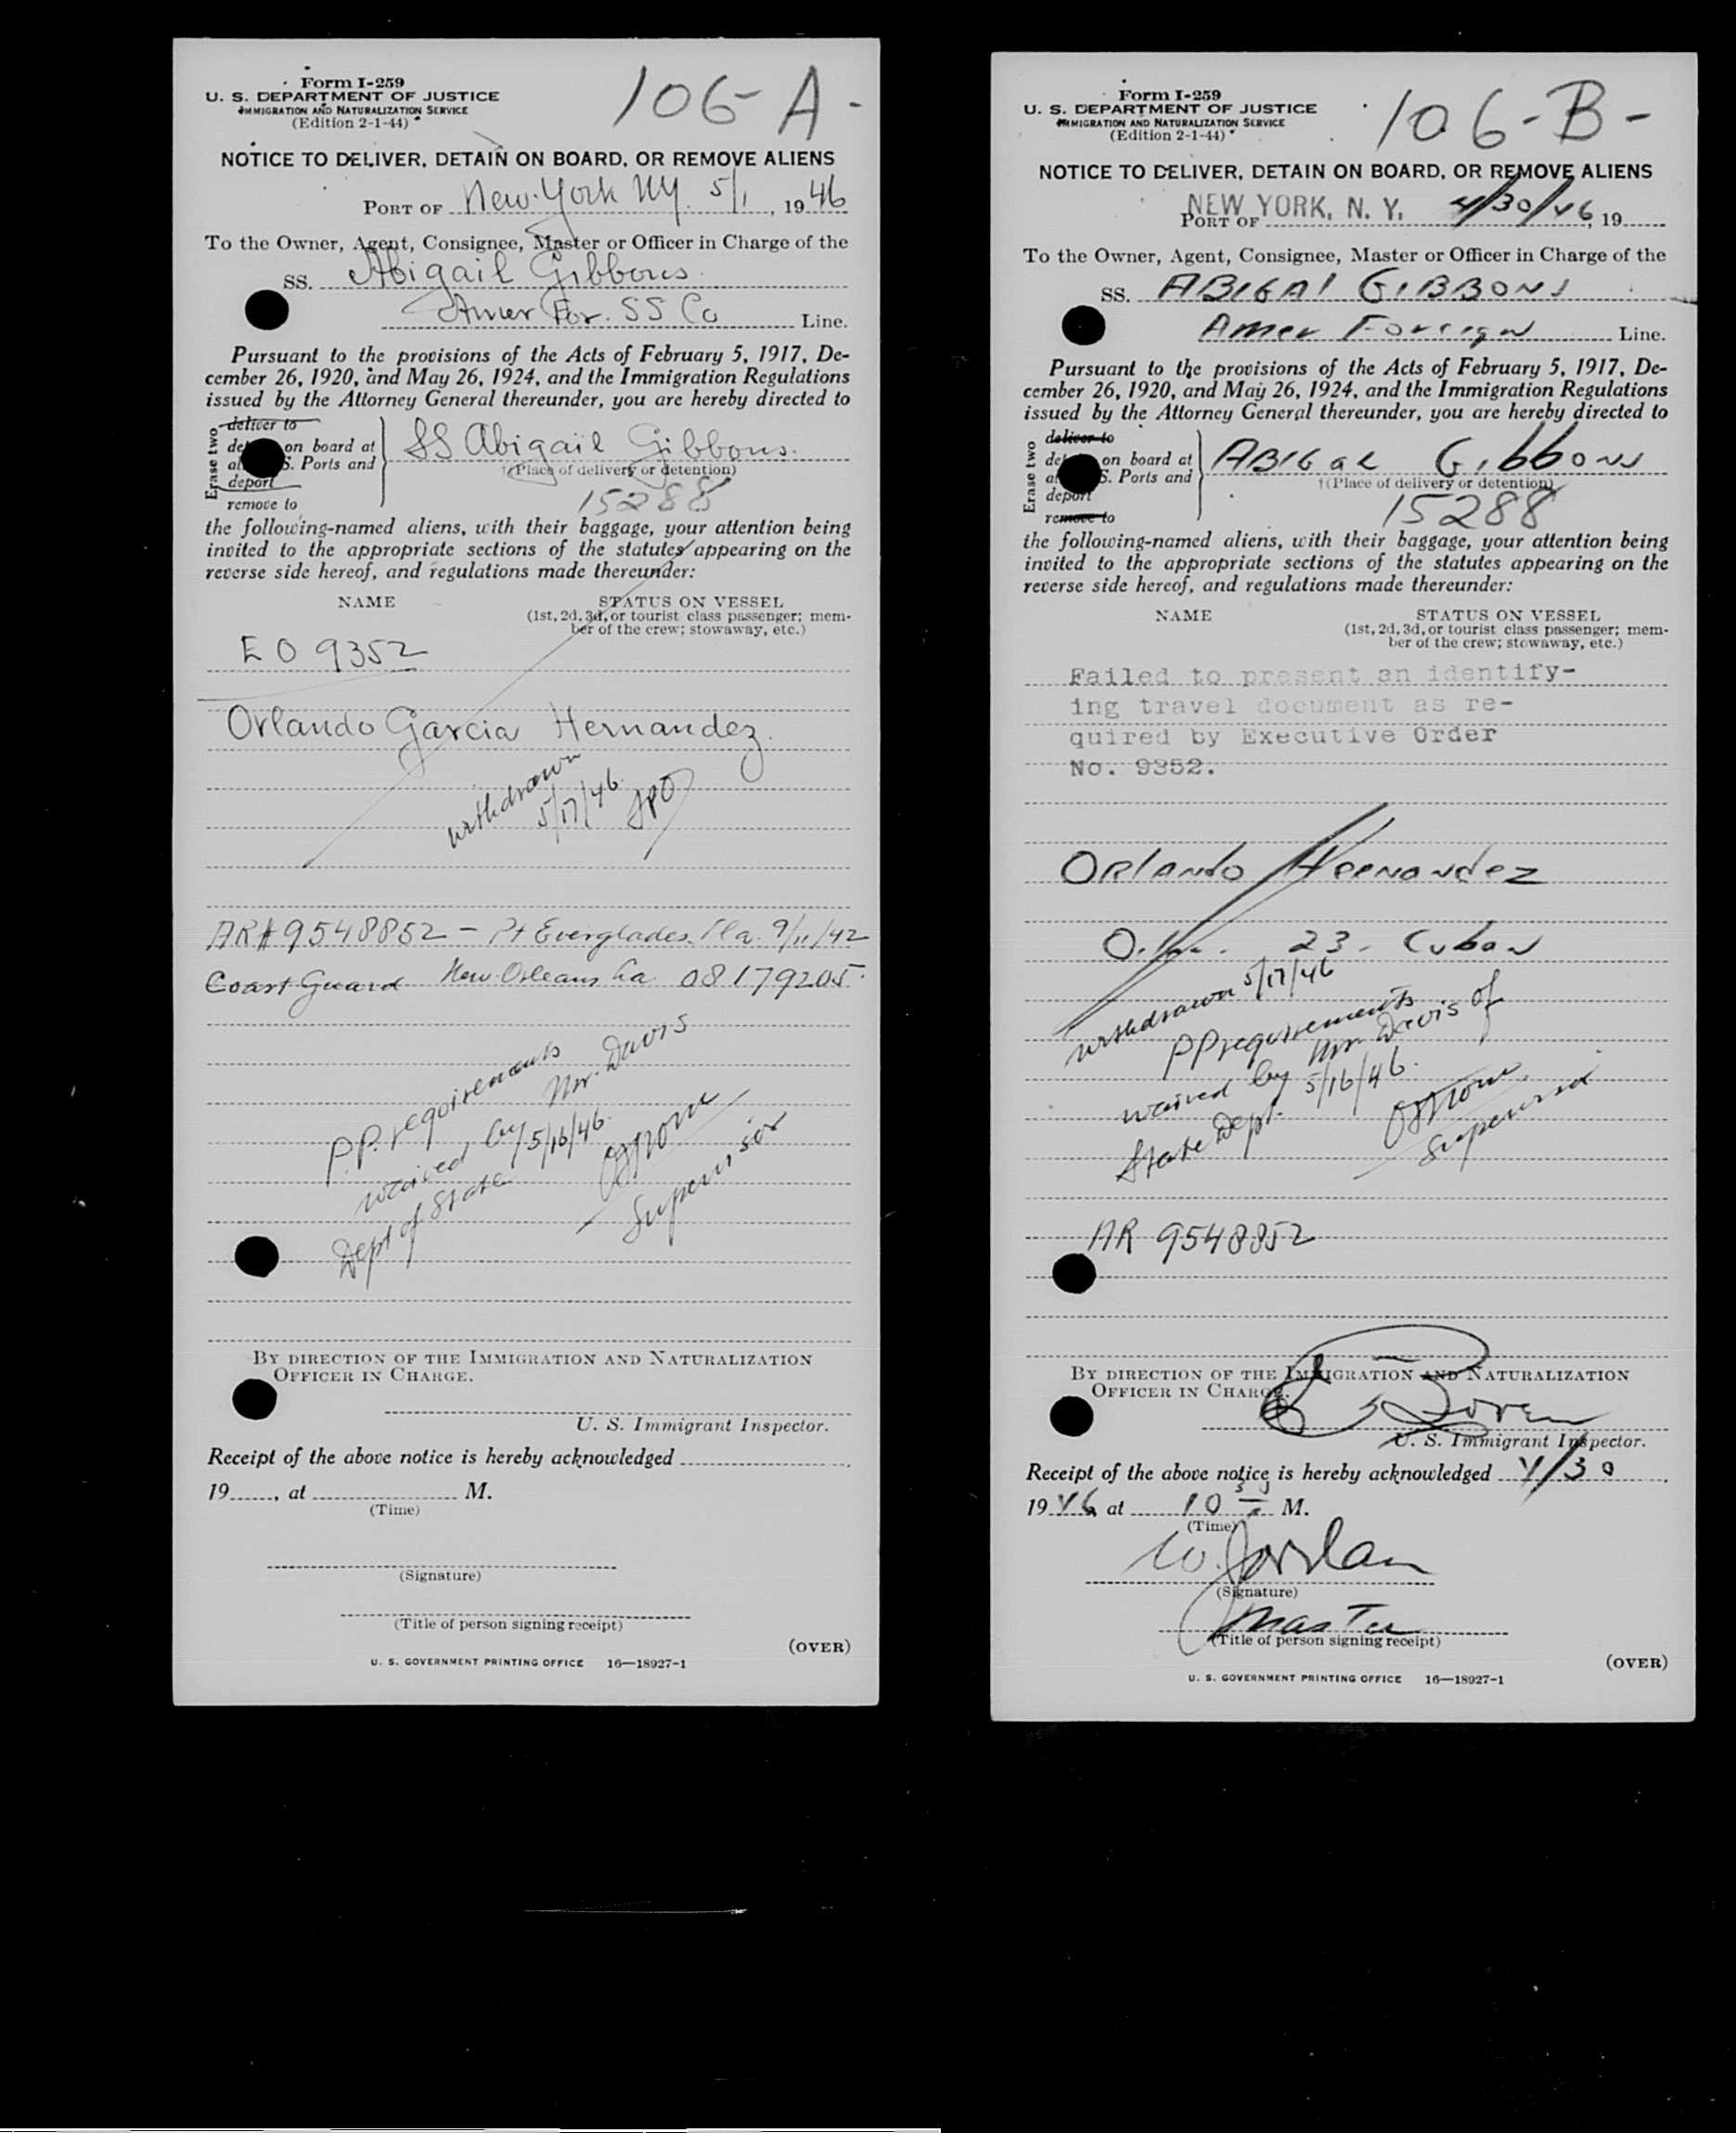 Form I-259
U. S. DEPARTMENT OF JUSTICE
IMMIGRATION AND NATURALIZATION SERVICE
(Edition 2-1-44)
106-A-
NOTICE TO DELIVER, DETAIN ON BOARD, OR REMOVE ALIENS
PORT OF New York NY. 5/1, 1946
To the Owner, Agent, Consignee, Master or Officer in Charge of the
SS. Abigail Gibbons
Amer For. SS Co Line.
Pursuant to the provisions of the Acts of February 5, 1917, De-
cember 26, 1920, and May 26, 1924, and the Immigration Regulations
issued by the Attorney General thereunder, you are hereby directed to
Erase two
deliver to
on board at
S. Ports and
deport
remove to
SS Abigail Gibbons.
†(Place of delivery or detention)
15288
the following-named aliens, with their baggage, your attention being
invited to the appropriate sections of the statutes appearing on the
reverse side hereof, and regulations made thereunder:
NAME STATUS ON VESSEL
(1st, 2d, 3d, or tourist class passenger; mem-
ber of the crew; stowaway, etc.)
E O 9352
Orlando Garcia Hernandez.
withdrawn
5/17/46.
AR# 9548852 - Pt Everglades. Fla. 9/11/42
Coast Guard New Orleans La. 08179205.
P.P. requirements
waived by Mr. Davis
Dept of State 5/16/46.
Supervisor
BY DIRECTION OF THE IMMIGRATION AND NATURALIZATION
OFFICER IN CHARGE.
U. S. Immigrant Inspector.
Receipt of the above notice is hereby acknowledged
19, at M.
(Time)
(Signature)
(Title of person signing receipt)
(OVER)
U. S. GOVERNMENT PRINTING OFFICE 16—18927-1
Form I-259
U. S. DEPARTMENT OF JUSTICE
IMMIGRATION AND NATURALIZATION SERVICE
(Edition 2-1-44)
106-B-
NOTICE TO DELIVER, DETAIN ON BOARD, OR REMOVE ALIENS
PORT OF NEW YORK, N. Y. 4/30/46, 19
To the Owner, Agent, Consignee, Master or Officer in Charge of the
SS. ABIGAl GIBBONS
Amer Foreign Line.
Pursuant to the provisions of the Acts of February 5, 1917, De-
cember 26, 1920, and May 26, 1924, and the Immigration Regulations
issued by the Attorney General thereunder, you are hereby directed to
Erase two
deliver to
on board at
S. Ports and
deport
remove to
ABIGal Gibbons
†(Place of delivery or detention)
15288
the following-named aliens, with their baggage, your attention being
invited to the appropriate sections of the statutes appearing on the
reverse side hereof, and regulations made thereunder:
NAME STATUS ON VESSEL
(1st, 2d, 3d, or tourist class passenger; mem-
ber of the crew; stowaway, etc.)
Failed to present an identify-
ing travel document as re-
quired by Executive Order
No. 9352.
Orlando Hernandez
23 - Cuban
withdrawn 5/17/46
PP requirements
waived by Mr. Davis of
State Dept. 5/16/46.
Supervisor
AR 9548852
BY DIRECTION OF THE IMMIGRATION AND NATURALIZATION
OFFICER IN CHARGE.
U. S. Immigrant Inspector.
Receipt of the above notice is hereby acknowledged 4/30,
1946 at 10 M.
(Time)
W. Jordan
(Signature)
Master
(Title of person signing receipt)
(OVER)
U. S. GOVERNMENT PRINTING OFFICE 16—18927-1